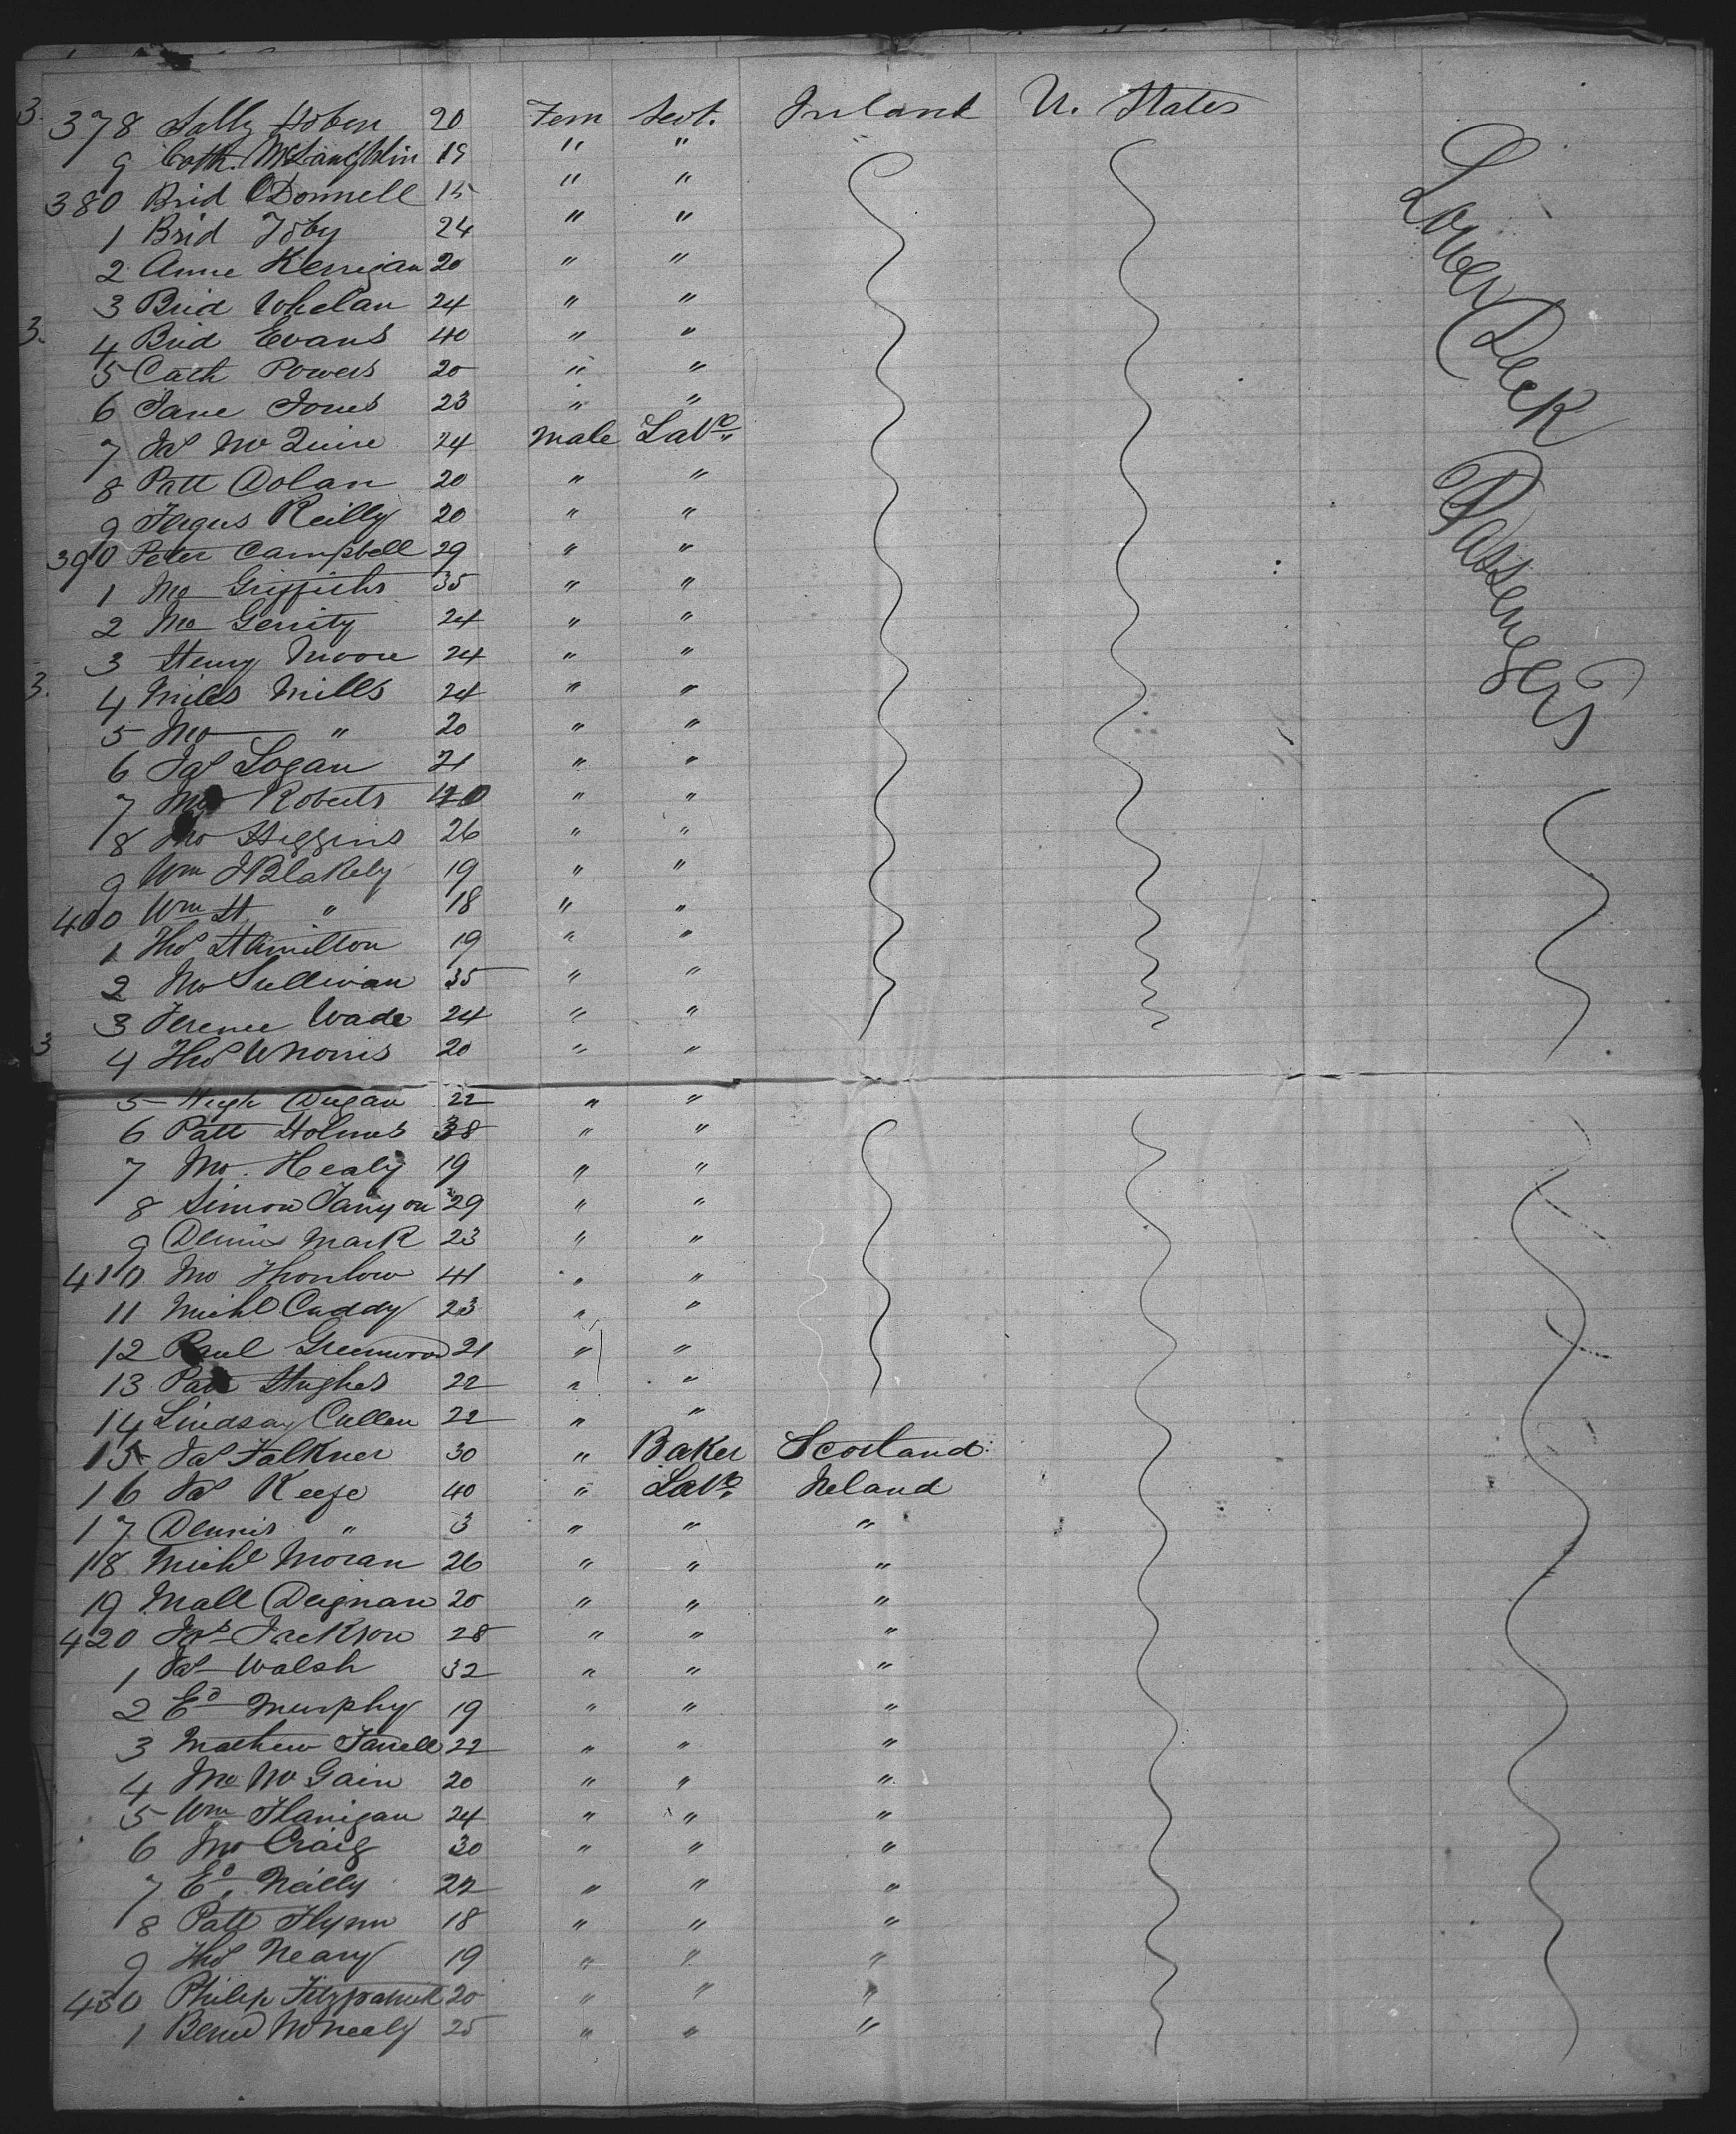 3. 378 Sally Hoben 20 Fem Sevt. Ireland U. States
9 Cath. McLaughlin 19 " "
380 Brid O'Donnell 15 " "
1 Brid Toby 24 " "
2 Anne Kerrigan 20 " "
3 Brid Whelan 24 " "
3. 4 Brid Evans 40 " "
5 Cath Powers 20 " "
6 Jane Jones 23 " "
7 Jas McQuire 24 Male Labr.
8 Patt Dolan 20 " "
9 Fergus Reilly 20 " "
390 Peter Campbell 29 " "
1 Jno Griffiths 35 " "
2 Jno Gerrity 24 " "
3 Henry Moore 24 " "
3. 4 Miles Mills 24 " "
5 Jno " 20 " "
6 Jas Logan 21 " "
7 Roberts 40 " "
8 Jno Higgins 26 " "
9 Wm J Blakely 19 " "
400 Wm H " 18 " "
1 Thos Hamilton 19 " "
2 Jno Sullivan 35 " "
3 Terence Wade 24 " "
3 4 Thos Whorris 20 " "
5 Hugh Dugan 22 " "
6 Patt Holmes 38 " "
7 Jno. Healy 19 " "
8 Simon 29 " "
9 Dennis Mark 23 " "
410 Jno 41 " "
11 Michl Caddy 23 " "
12 Paul Greenwood 21 " "
13 Patt Hughes 22 " "
14 Lindsay Cullen 22 " "
15 Jas Falkner 30 " Baker Scotland
16 Jas Keefe 40 " Labr. Ireland
17 Dennis " 3 " " "
18 Michl Moran 26 " " "
19 Mall Deignan 20 " " "
420 Jas Jackson 28 " " "
1 Jas Walsh 32 " " "
2 Ed Murphy 19 " " "
3 Mathew Farrell 22 " " "
4 Jno McGain 20 " " "
5 Wm Flanigan 24 " " "
6 Jno Craig 30 " " "
7 Ed. Neilly 22 " " "
8 Patt Flynn 18 " " "
9 Thos Neary 19 " " "
430 Philip Fitzpatrick 20 " " "
1 Bernd McNeely 25 " " "
Lower Deck Passengers